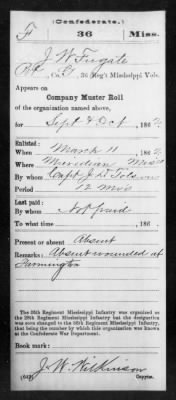 (Confederate.)
F 36 Miss.
J W Fugate
Pvt, Co. F, 36 Reg't Mississippi Vols.
Appears on
Company Muster Roll
of the organization named above,
for Sept & Oct, 1862
Enlisted:
When March 11, 1862
Where Meridian Miss
By whom Capt J D
Period 12 Mos
Last paid:
By whom Not paid
To what time , 186 .
Present or absent Absent
Remarks: Absent wounded at
Farmington
The 36th Regiment Mississippi Infantry was organized as
the 38th Regiment Mississippi Infantry but the designation
was soon changed to the 36th Regiment Mississippi Infantry,
that being the number by which this organization was known
at the Confederate War Department.
Book mark:
J. W. Wilkinson
(642) Copyist.